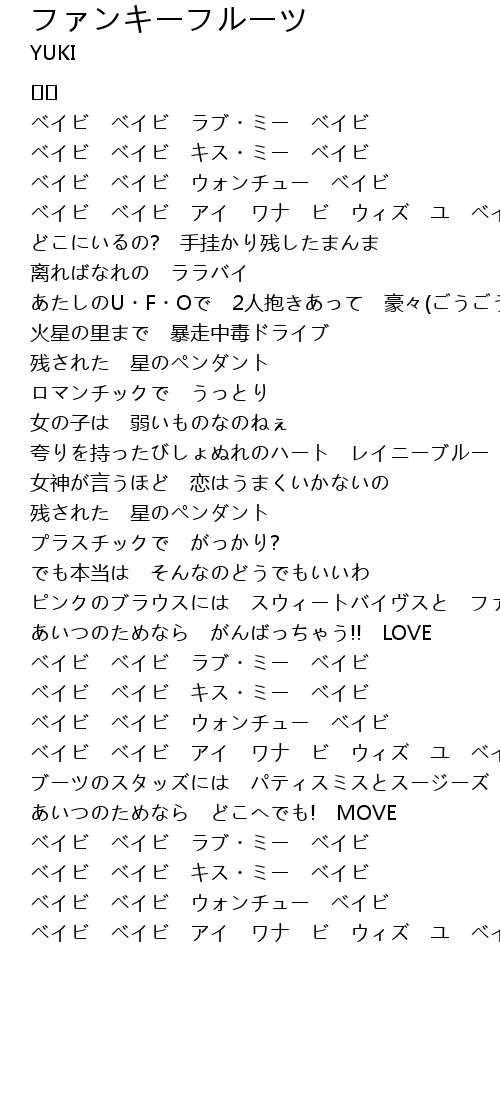 ファンキーフルーツ
YUKI
ベイビ　ベイビ　ラブ・ミー　ベイビ
ベイビ　ベイビ　キス・ミー　ベイビ
ベイビ　ベイビ　ウォンチュー　ベイビ
ベイビ　ベイビ　アイ　ワナ　ビ　ウィズ　ユ　ベイ
どこにいるの?　手掛かり残したまんま
离ればなれの　ララバイ
あたしのU・F・Oで　2人抱きあって　豪々(ごうごう
火星の里まで　暴走中毒ドライブ
残された　星のペンダント
ロマンチックで　うっとり
女の子は　弱いものなのねぇ
夸りを持ったびしょぬれのハート　レイニーブルー
女神が言うほど　恋はうまくいかないの
残された　星のペンダント
プラスチックで　がっかり?
でも本当は　そんなのどうでもいいわ
ピンクのブラウスには　スウィートバイヴスと　ファ
あいつのためなら　がんばっちゃう!!　LOVE
ベイビ　ベイビ　ラブ・ミー　ベイビ
ベイビ　ベイビ　キス・ミー　ベイビ
ベイビ　ベイビ　ウォンチュー　ベイビ
ベイビ　ベイビ　アイ　ワナ　ビ　ウィズ　ユ　ベイ
ブーツのスタッズには　パティスミスとスージーズ
あいつのためなら　どこへでも!　MOVE
ベイビ　ベイビ　ラブ・ミー　ベイビ
ベイビ　ベイビ　キス・ミー　ベイビ
ベイビ　ベイビ　ウォンチュー　ベイビ
ベイビ　ベイビ　アイ　ワナ　ビ　ウィズ　ユ　ベイ